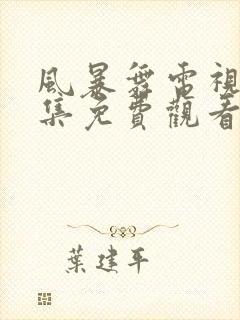 風暴舞電視
集免費觀看
葉建平